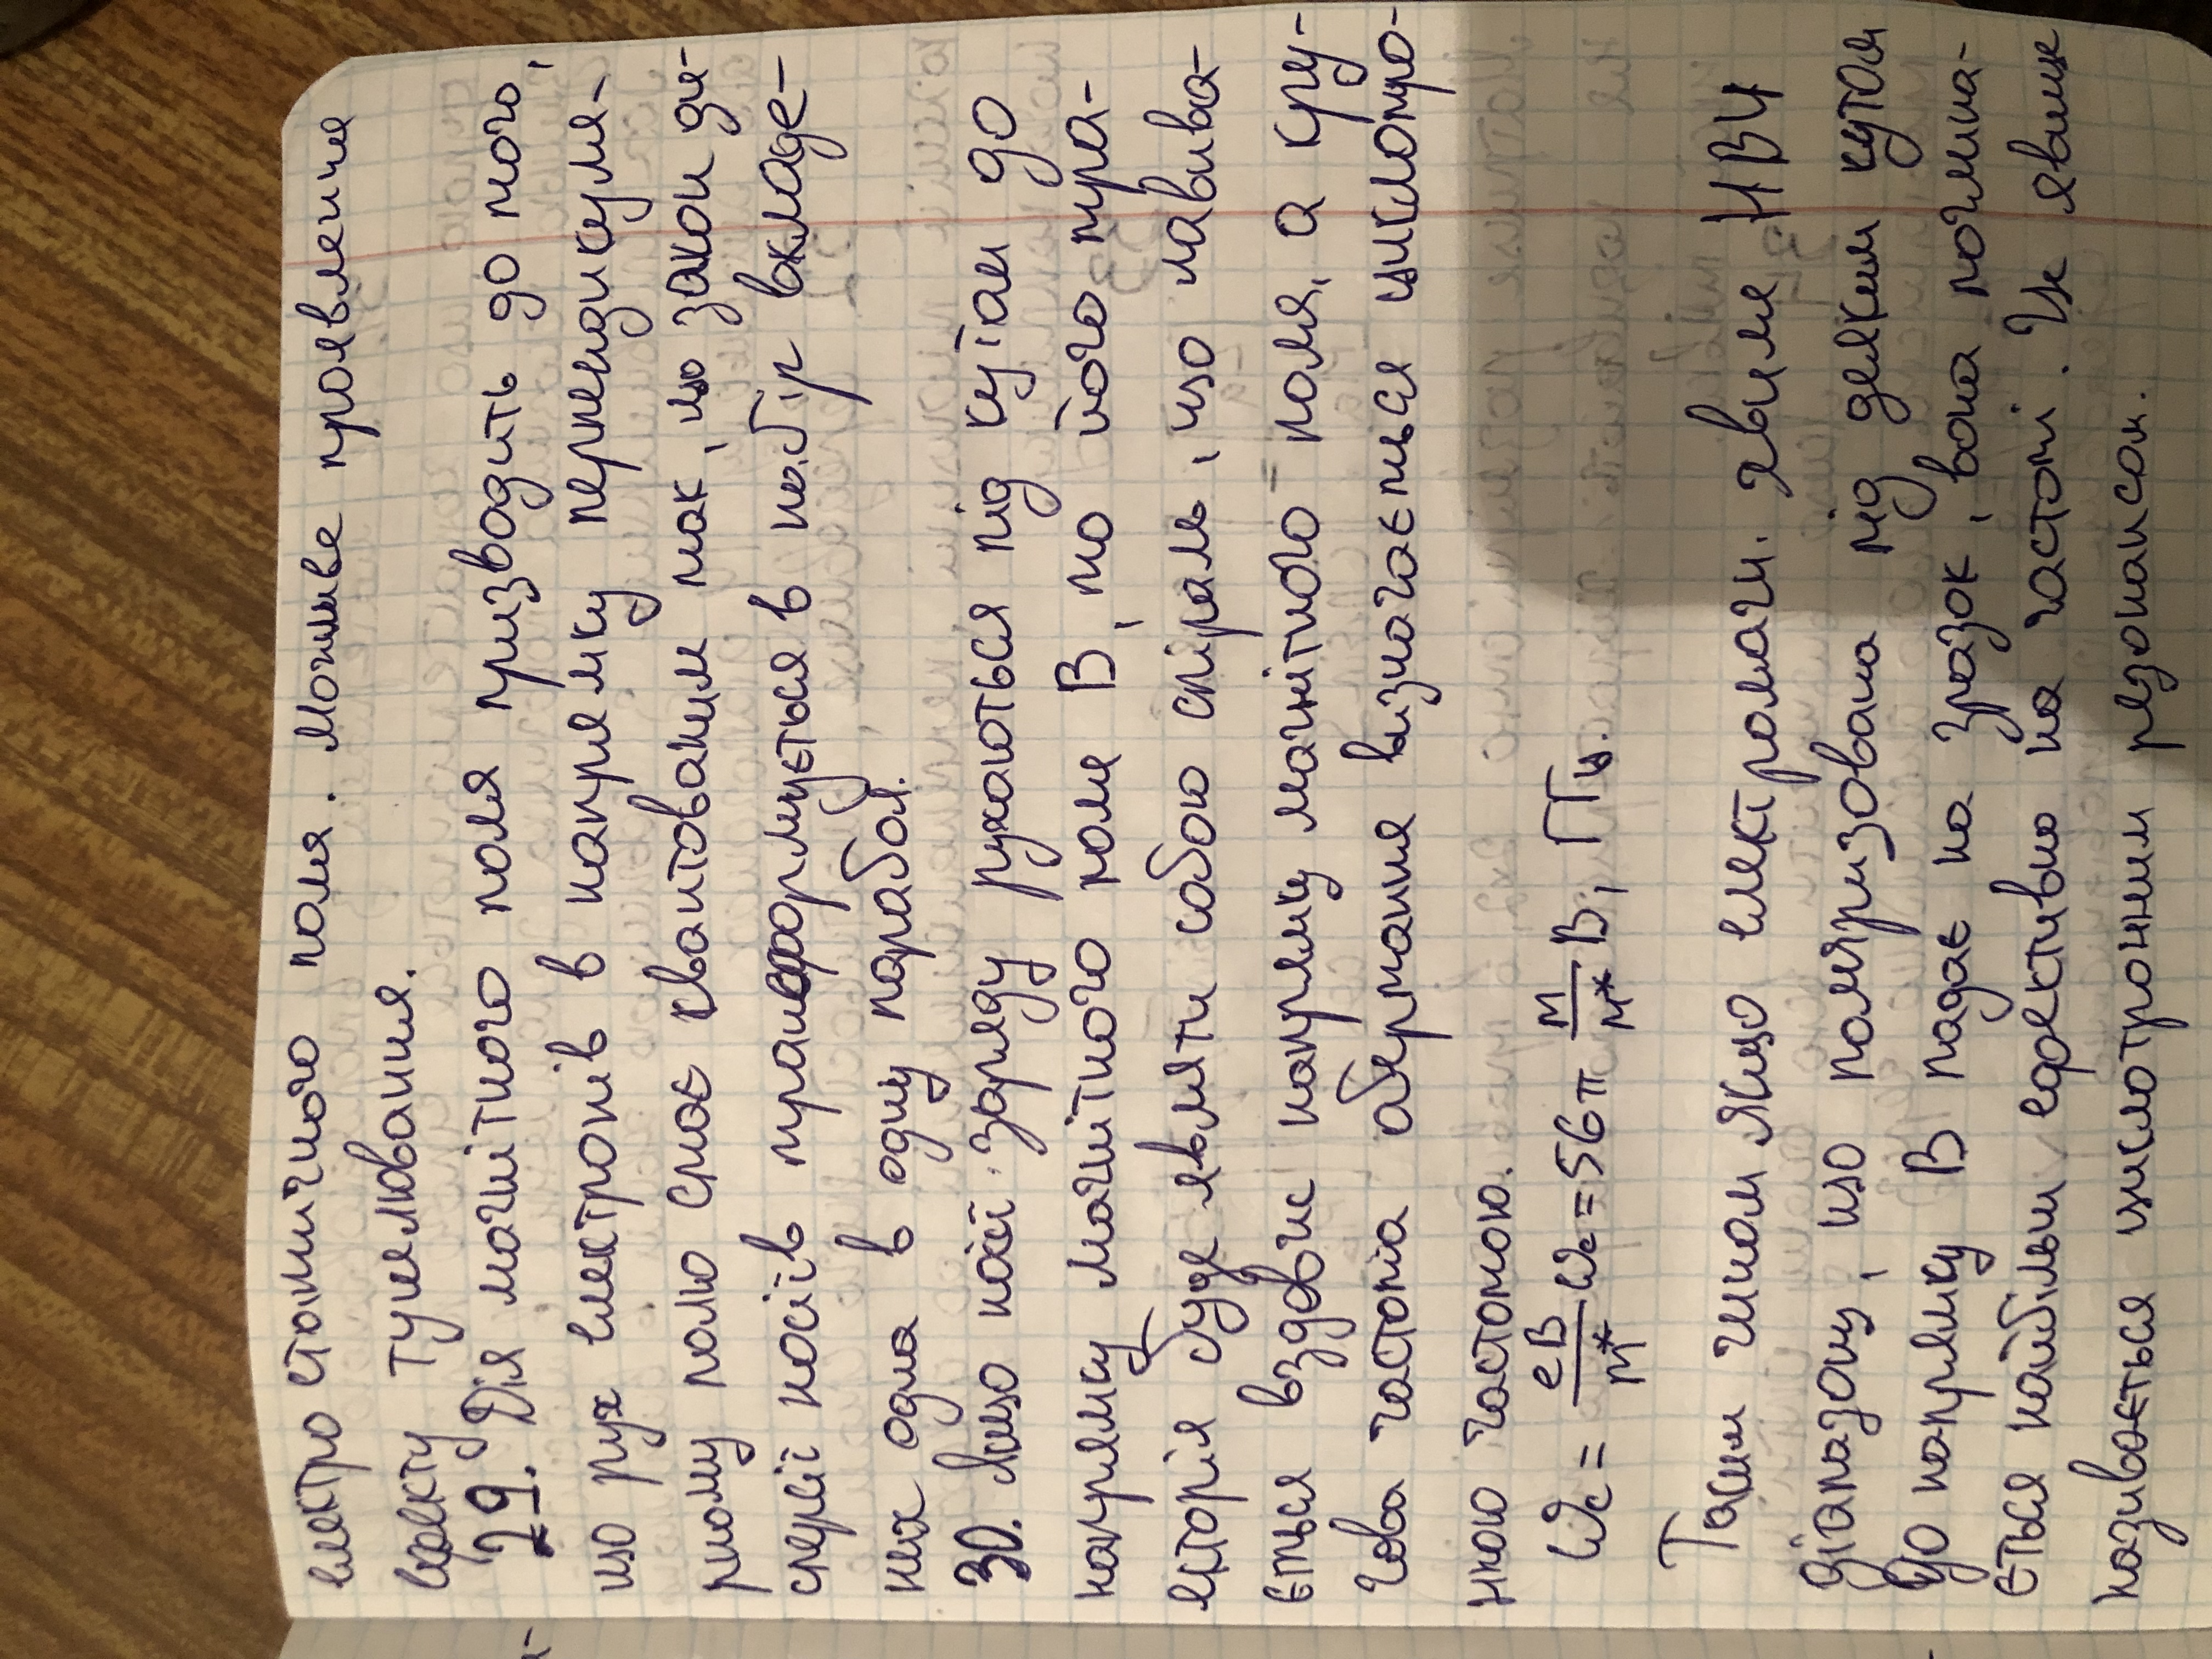 електростатичного поля. Можливе проявлення
ефекту тунелювання.
29. Дія магнітного поля призводить до того,
що рух електронів в напрямку перпендикуля-
рному полю стає квантованим так, що закон ди-
сперсії носіїв трансформується в набір вкладе-
них одна в одну парабол.
30. Якщо носії заряду рухаються під кутом до
напрямку магнітного поля B, то його тра-
єкторія буде являти собою спіраль, що навива-
ється вздовж напрямку магнітного поля, а кру-
гова частота обертання визначається циклотро-
нною частотою.
ωc = eB/m* ωc = 56π m/m* B, ГГц.
Таким чином якщо електромагн. хвиля НВЧ
діапазону, що поляризована під деяким кутом
до напрямку B падає на зразок, вона поглина-
ється найбільш ефективно на частоті. Це явище
називається циклотронним резонансом.